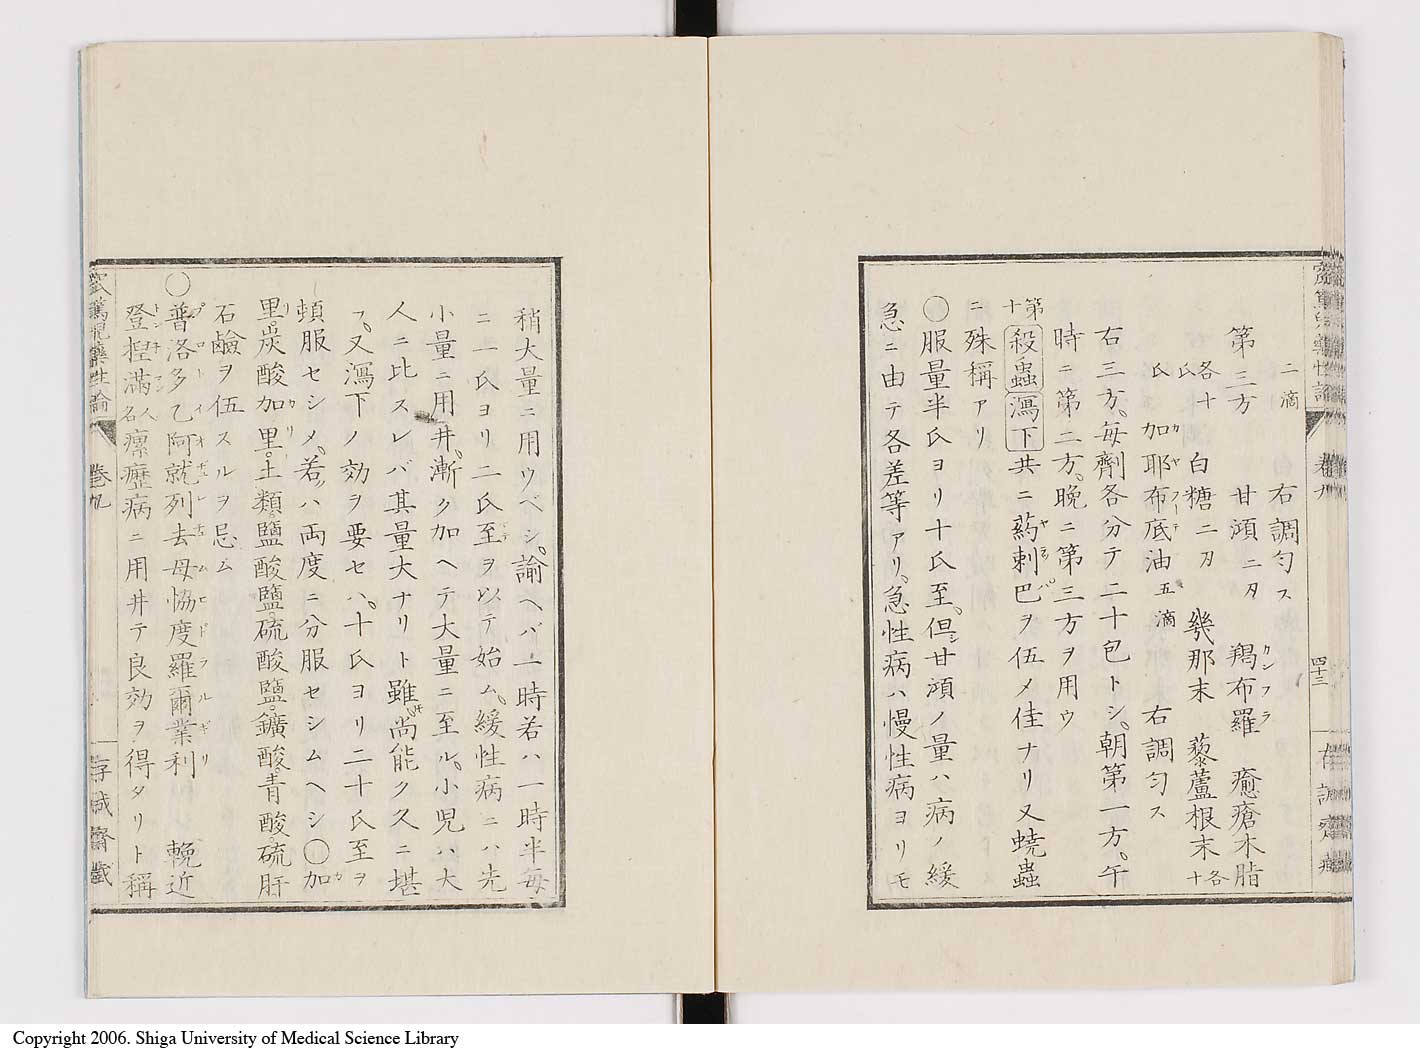 二滴
右調勻ス
第三方
甘澒二刄
羯布羅
癒瘡木脂
カンフラ
各十氏
白糖二刄
幾那末
藜蘆根末各十
氏
加耶布底油五滴
右調勻ス
カヤプーテ
右三方、毎劑各分テ二十包トシ、朝第一方、午
時ニ第二方、晩ニ第三方ヲ用ウ
第十
殺蟲瀉下共ニ葯剌巴ヲ伍メ佳ナリ又蟯蟲
ヤラッパ
ニ殊稱アリ
〇服量半氏ヨリ十氏至、但シ甘澒ノ量ハ病ノ緩
急ニ由テ各差等アリ、急性病ハ慢性病ヨリモ
卷九
四十三
稍大量ニ用ウベシ、諭ヘバ二時若ハ一時半毎
ニ一氏ヨリ二氏至ヲ以テ始ム、緩性病ニハ先
小量ニ用井、漸ク加ヘテ大量ニ至ル、小児ハ大
人ニ比スレバ其量大ナリト雖𪜈尚能ク久ニ堪
フ、又瀉下ノ効ヲ要セハ、十氏ヨリ二十氏至ヲ
頓服セシメ、若ハ両度ニ分服セシムヘシ〇加
里炭酸加里土類鹽酸鹽硫酸鹽鑛酸青酸硫肝
石鹼ヲ伍スルヲ忌ム
〇普洛多乙阿就列去母協度羅爾業利
プロトイオヂュレキュムヒドラルギリ
輓近
登揑滿人名瘰癧病ニ用井テ良効ヲ得タリト稱
窊篤児藥性論
卷九
存誠齋藏
Copyright 2006. Shiga University of Medical Science Library